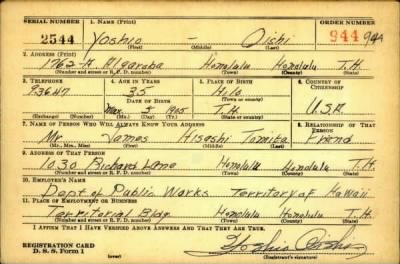 SERIAL NUMBER 1. NAME (Print) ORDER NUMBER
2544 Yoshio - Oishi 944 944
(First) (Middle) (Last)
2. ADDRESS (Print)
1762-A Algaroba Honolulu Honolulu T.H.
(Number and street or R. F. D. number) (Town) (County) (State)
3. TELEPHONE 4. AGE IN YEARS 5. PLACE OF BIRTH 6. COUNTRY OF CITIZENSHIP
93647 35 Hilo
DATE OF BIRTH (Town or county)
1905 T.H. U.S.A
(Exchange) (Number) (Mo.) (Day) (Yr.) (State or country)
7. NAME OF PERSON WHO WILL ALWAYS KNOW YOUR ADDRESS 8. RELATIONSHIP OF THAT PERSON
Mr James Hisashi Tomita Friend
(Mr., Mrs., Miss) (First) (Middle) (Last)
9. ADDRESS OF THAT PERSON
1030 Richard Lane Honolulu Honolulu T.H.
(Number and street or R. F. D. number) (Town) (County) (State)
10. EMPLOYER'S NAME
Dept of Public Works Territory of Hawaii
11. PLACE OF EMPLOYMENT OR BUSINESS
Territorial Bldg. Honolulu Honolulu T.H.
(Number and street or R. F. D. number) (Town) (County) (State)
I AFFIRM THAT I HAVE VERIFIED ABOVE ANSWERS AND THAT THEY ARE TRUE.
REGISTRATION CARD
D. S. S. Form 1 Yoshio Oishi
(Registrant's signature)